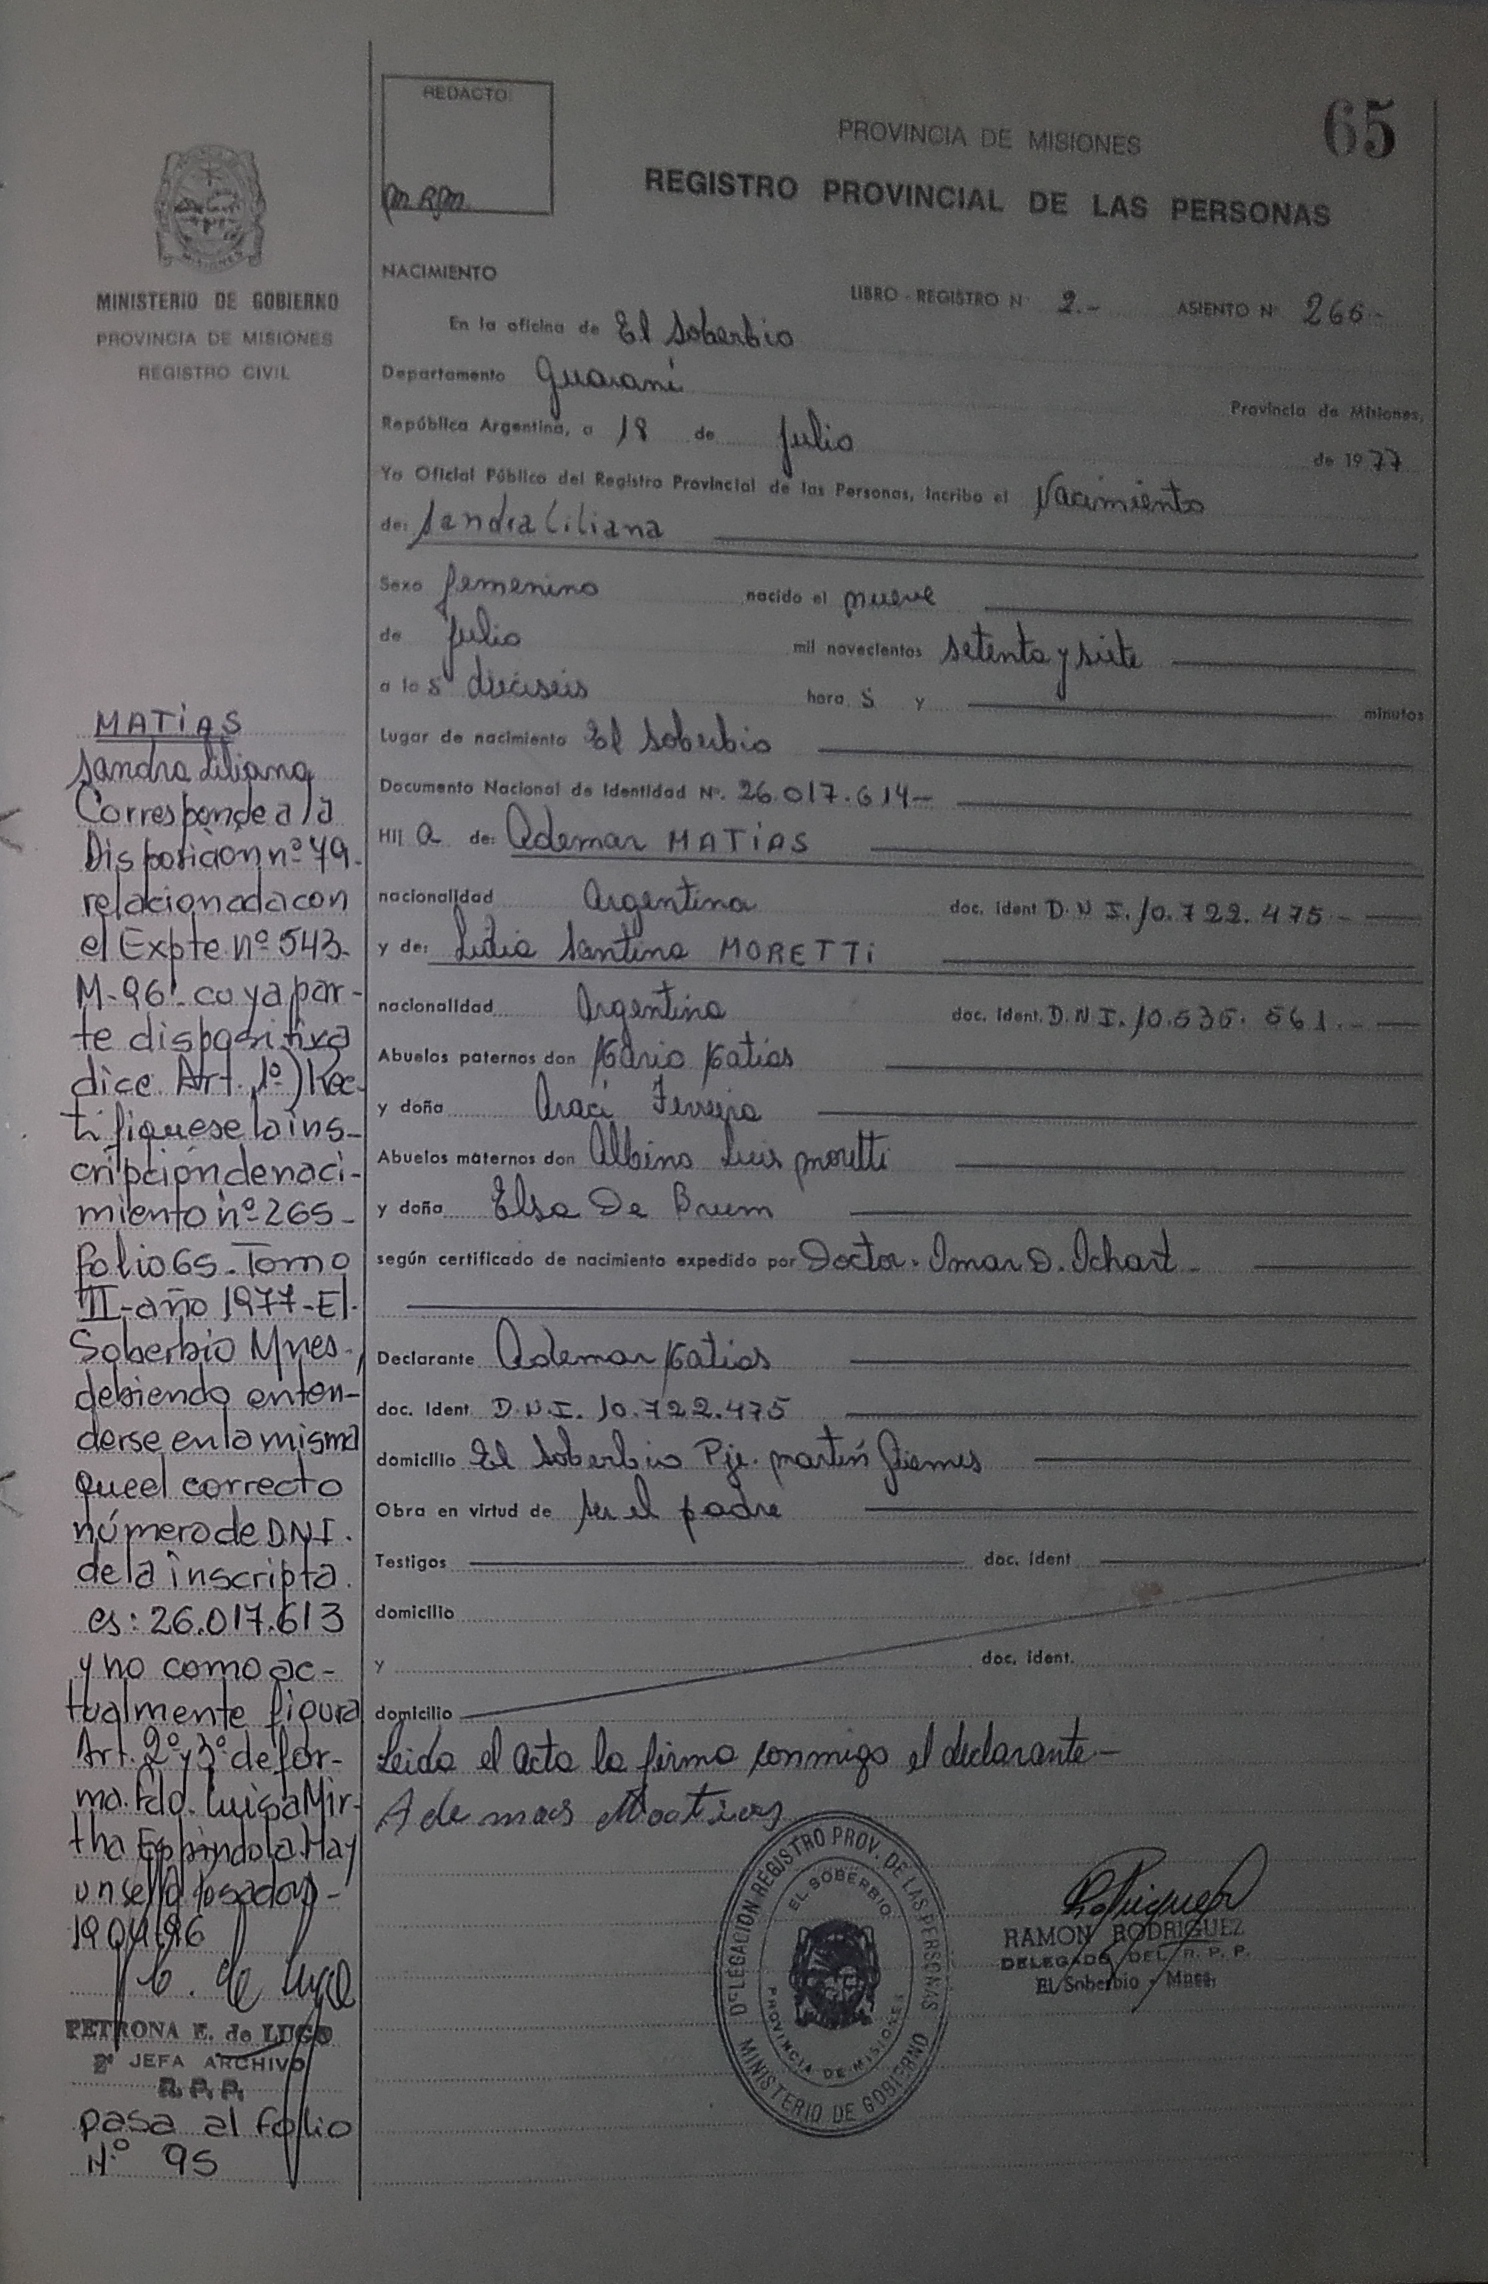 REDACTO:
65
PROVINCIA DE MISIONES
REGISTRO PROVINCIAL DE LAS PERSONAS
MINISTERIO DE GOBIERNO
PROVINCIA DE MISIONES
REGISTRO CIVIL
NACIMIENTO
LIBRO - REGISTRO N° 2.- ASIENTO N° 266.-
En la oficina de El Soberbio
Departamento Guarani
Provincia de Misiones,
República Argentina, a 18 de Julio de 1977
Yo Oficial Público del Registro Provincial de las Personas, incribo el Nacimiento
de: Sandra Liliana
Sexo femenino nacido el nueve
de Julio mil novecientos setenta y siete
a las dieciseis hora s y minutos
Lugar de nacimiento El Soberbio
Documento Nacional de Identidad N°. 26.017.614-
Hij a de: Ademar MATIAS
nacionalidad Argentina doc. ident D.N.I. 10.722.475.-
y de: Lidia Santina MORETTI
nacionalidad Argentina doc. ident. D.N.I. 10.535.561.-
Abuelos paternos don Mario Matias
y doña Araci Ferreira
Abuelos maternos don Albino Luis Moretti
y doña Elsa De Brum
según certificado de nacimiento expedido por Doctor. Omar D. Ichart.
Declarante Ademar Matias
doc. Ident D.N.I. 10.722.475
domicilio El Soberbio Pje. Martín Güemes
Obra en virtud de ser el padre
Testigos doc. ident
domicilio
y doc. ident.
domicilio
Leida el acta la firma conmigo el declarante-
DELEGACION REGISTRO PROV. DE LAS PERSONAS
EL SOBERBIO
PROVINCIA DE MISIONES
MINISTERIO DE GOBIERNO
RAMON RODRIGUEZ
DELEGADO DEL R. P. P.
El Soberbio - Mnes.
MATIAS
Sandra Liliana
Corresponde a la
Disposición nº 79.
relacionada con
el Expte nº 543-
M-96 cuya par-
te dispositiva
dice. Art. 1º) Rec-
tifiquese la ins-
cripción de naci-
miento nº 265-
folio 65. Tomo
II-año 1977-El
Soberbio Mnes.,
debiendo enten-
derse en la misma
que el correcto
número de D.N.I.
de la inscripta
es: 26.017.613
y no como ac-
tualmente figura
Art. 2º y 3º de for-
ma. Fdo. Luisa Mir-
tha Espíndola. Hay
un sello fosador-
19 04 96
PETRONA E. de LUGO
2ª JEFA ARCHIVO
R. P. P.
pasa al folio
N.º 95